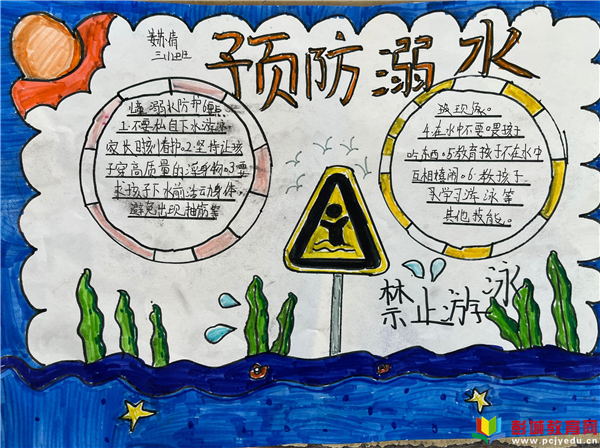 预防溺水
懂溺水防护要点
1.不要私自下水游泳。
家长时刻看护。2.坚持让孩
子穿高质量的浮身物。3.要
求孩子下水前活动身体。
避免出现抽筋等
这现象。
4.在水中不要喂孩子
吃东西。5.教育孩子不在水中
互相嬉闹。6.教孩子
来学习游泳等
其他技能。
禁止游泳
彭城教育网
www.pcjyedu.cn